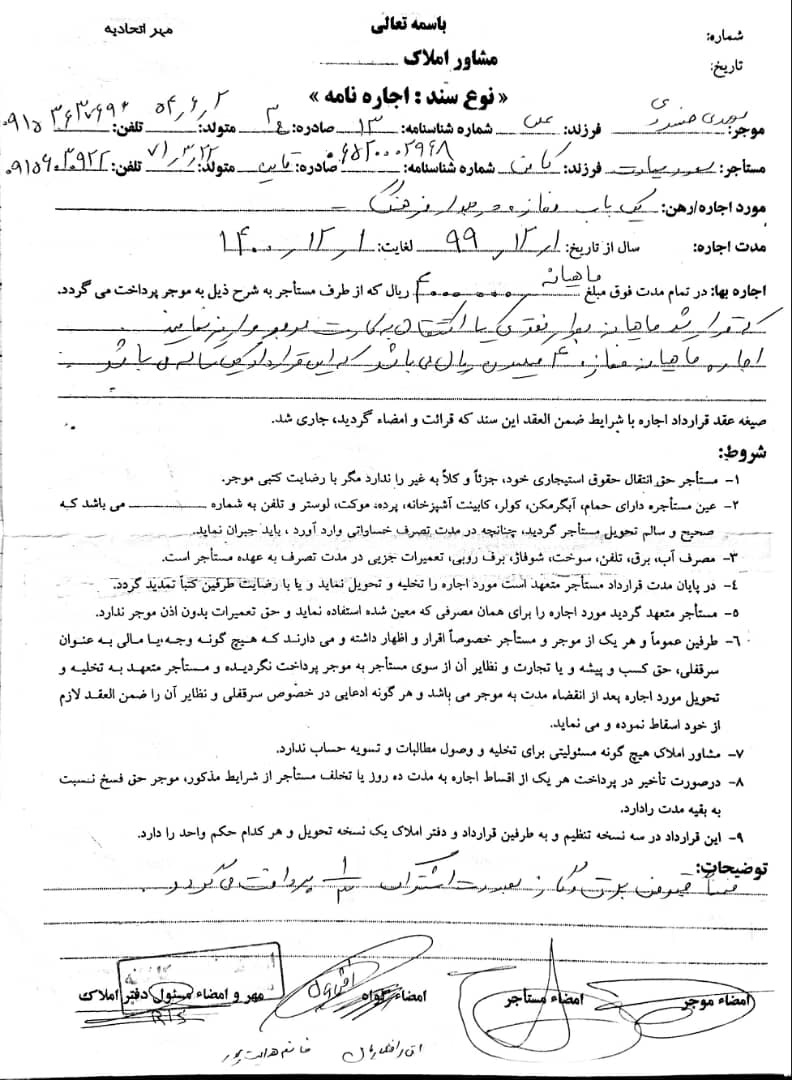 باسمه تعالی
مهر اتحادیه
شماره:
مشاور املاک
تاریخ:
« نوع سند : اجاره نامه »
موجر: فرزند: علی شماره شناسنامه: ۱۳ صادره: متولد: ۵۴٫۶٫۲ تلفن:
مستأجر: فرزند: شماره شناسنامه: صادره: قاین متولد: ۷۱٫۳٫۲۲ تلفن:
مورد اجاره/رهن: یک باب مغازه در بلوار فرهنگ
مدت اجاره: سال از تاریخ: ۹۹٫۱۲٫۱ لغایت: ۱۴۰۰٫۱۲٫۱
ماهیانه
اجاره بها: در تمام مدت فوق مبلغ ۴۰۰۰۰۰۰ ریال که از طرف مستأجر به شرح ذیل به موجر پرداخت می گردد.
که قرار شد ماهیانه بصورت نقدی یا به کارت موجر واریز نمایند
اجاره ماهیانه مغازه ۴ میلیون ریال می باشد که این قرارداد یکساله می باشد
صیغه عقد قرارداد اجاره با شرایط ضمن العقد این سند که قرائت و امضاء گردید، جاری شد.
شروط:
۱- مستأجر حق انتقال حقوق استیجاری خود، جزئاً و کلاً به غیر را ندارد مگر با رضایت کتبی موجر.
۲- عین مستأجره دارای حمام، آبگرمکن، کولر، کابینت آشپزخانه، پرده، موکت، لوستر و تلفن به شماره می باشد که
صحیح و سالم تحویل مستأجر گردید، چنانچه در مدت تصرف خساراتی وارد آورد ، باید جبران نماید.
۳- مصرف آب، برق، تلفن، سوخت، شوفاژ، برف روبی، تعمیرات جزیی در مدت تصرف به عهده مستأجر است.
۴- در پایان مدت قرارداد مستأجر متعهد است مورد اجاره را تخلیه و تحویل نماید و یا با رضایت طرفین کتباً تمدید گردد.
۵- مستأجر متعهد گردید مورد اجاره را برای همان مصرفی که معین شده استفاده نماید و حق تعمیرات بدون اذن موجر ندارد.
۶- طرفین عموماً و هر یک از موجر و مستأجر خصوصاً اقرار و اظهار داشته و می دارند که هیچ گونه وجه،یا مالی به عنوان
سرقفلی، حق کسب و پیشه و یا تجارت و نظایر آن از سوی مستأجر به موجر پرداخت نگردیده و مستأجر متعهد به تخلیه و
تحویل مورد اجاره بعد از انقضاء مدت به موجر می باشد و هر گونه ادعایی در خصوص سرقفلی و نظایر آن را ضمن العقد لازم
از خود اسقاط نموده و می نماید.
۷- مشاور املاک هیچ گونه مسئولیتی برای تخلیه و وصول مطالبات و تسویه حساب ندارد.
۸- درصورت تأخیر در پرداخت هر یک از اقساط اجاره به مدت ده روز یا تخلف مستأجر از شرایط مذکور، موجر حق فسخ نسبت
به بقیه مدت رادارد.
۹- این قرارداد در سه نسخه تنظیم و به طرفین قرارداد و دفتر املاک یک نسخه تحویل و هر کدام حکم واحد را دارد.
توضیحات:
ضمناً قبوض برق و گاز بصورت اشتراکی ۱/۳ پرداخت می گردد.
امضاء موجر امضاء مستأجر امضاء گواه مهر و امضاء مسئول دفتر املاک